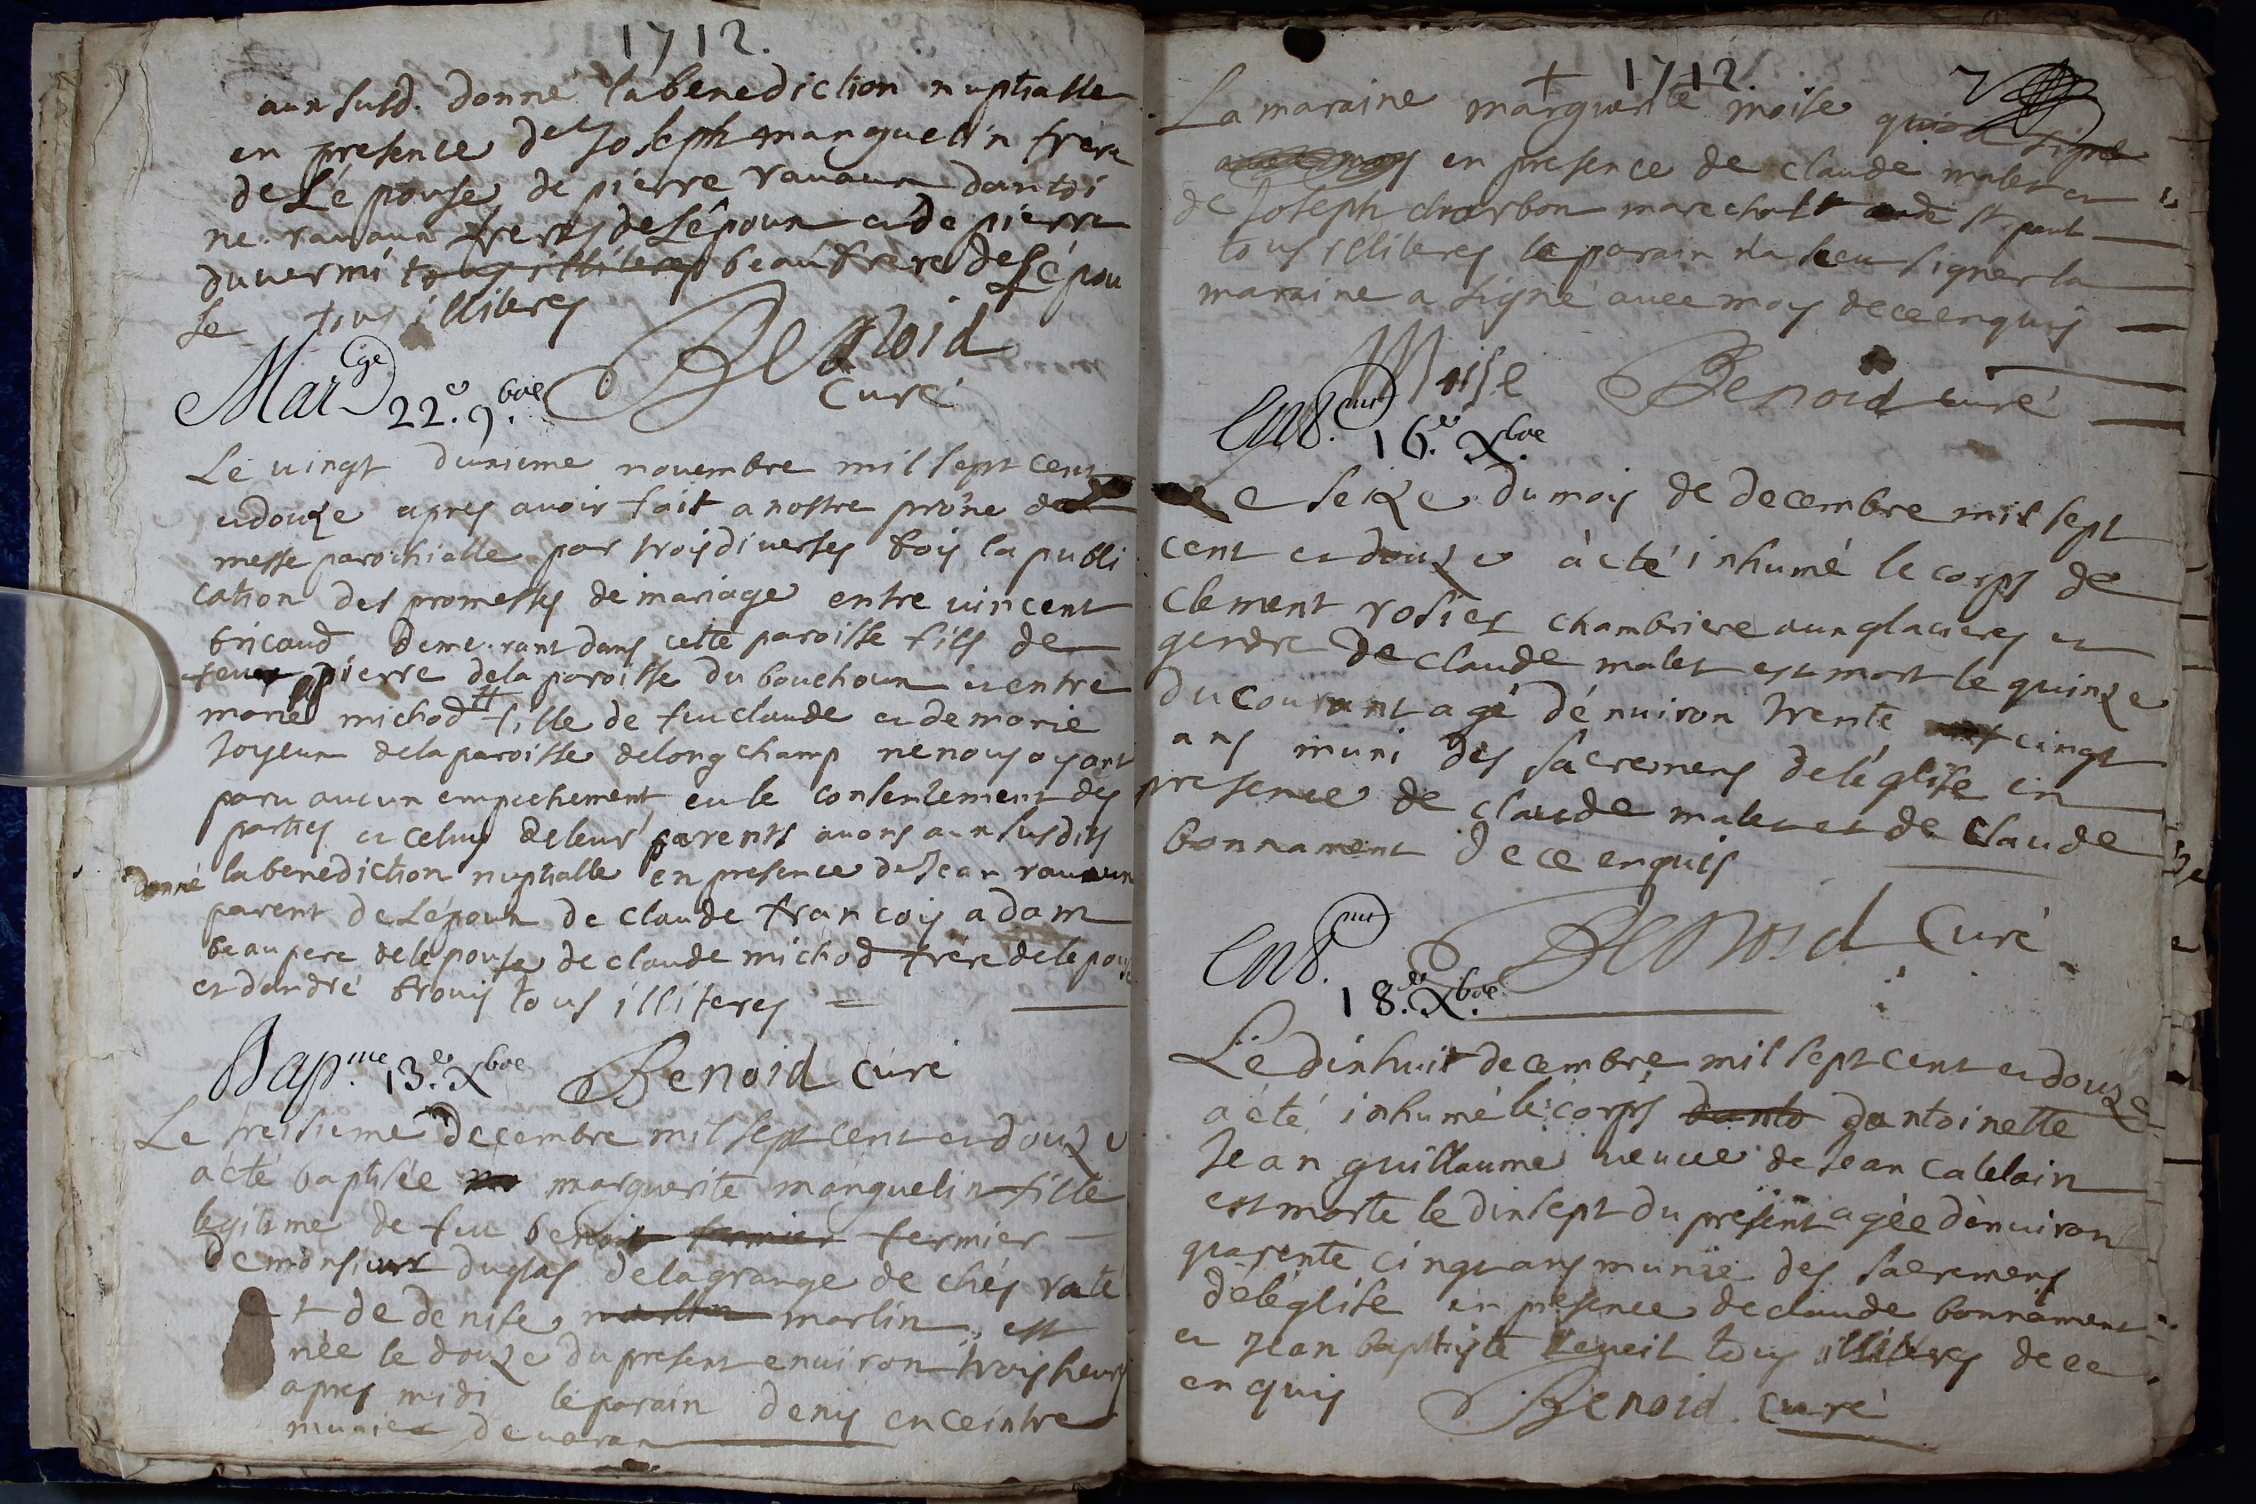 1712.
aux susd. donné la benediction nuptialle
en presence de Joseph manguelin frere
de Lépouse de pierre ravaux dantoi
ne ravaux freres de Lépoux et de pierre
duvermi tous illiteres beaufrere de Lépou
se tous illiteres
Benoid
Curé
Mar.ge 22.e 9.bre
Le vingt duxieme novembre mil sept cent
et douze apres avoir fait a nostre prône de
messe parochialle par trois diverses fois la publi
cation des promesses de mariage entre vincent
bricaud demeurant dans cette paroisse fils de
feu pierre de la paroisse du bouchoux et entre
marie michod fille de feu claude et de marie
Joyeux de la paroisse de longchamp ne nous ayant
paru aucun empechement eu le consentement des
parties et celuy de leurs parents avons aux susdits
donné la benediction nuptialle en presence de Jean ravaux
parent de Lépoux de claude francois adam
beaupere de lepouse de claude michod frere de lepouse
et dandré trouis tous illiteres
Bap.me 13.e Xbre Benoid Curé
Le treisieme decembre mil sept cent et douze
a eté baptisée marguerite manguelin fille
legitime de feu benoit fermier fermier
de monsieur duglas de la grange de chés raté
et de denise marlin est
née le douze du present environ trois heures
apres midi le parain denis enceintre
munier de varax
1712.
7
La maraine marguerite moise qui a signé
avec moy en presence de claude malet et
de Joseph charbon marechalt de st paul
tous illiteres le parain na sceu signer la
maraine a signé avec moy de ce enquis
Moise Benoid curé
Ent.mt 16.e Xbre
Le seize du mois de decembre mil sept
cent et douze à eté inhumé le corps de
Clement rosier chambriere aux glacieres et
gendre de claude malet est mort le quinze
du courant agé dénuiron trente cinqt
ans muni des sacremens de léglise en
presence de claude malet et de Claude
bonnament de ce enquis
Benoid Curé
Ent.mt
18.e Xbre
Le dixhuit decembre mil sept cent et douze
a eté inhumé le corps danto dantoinette
Jean guillaume veuve de Jean catelain
est morte le dixsept du present agée dènuiron
quarente cinqt ans munie des sacremens
déléglise en presence de claude bonnament
et Jean baptiste Leveil tous illiteres de ce
enquis Benoid curé